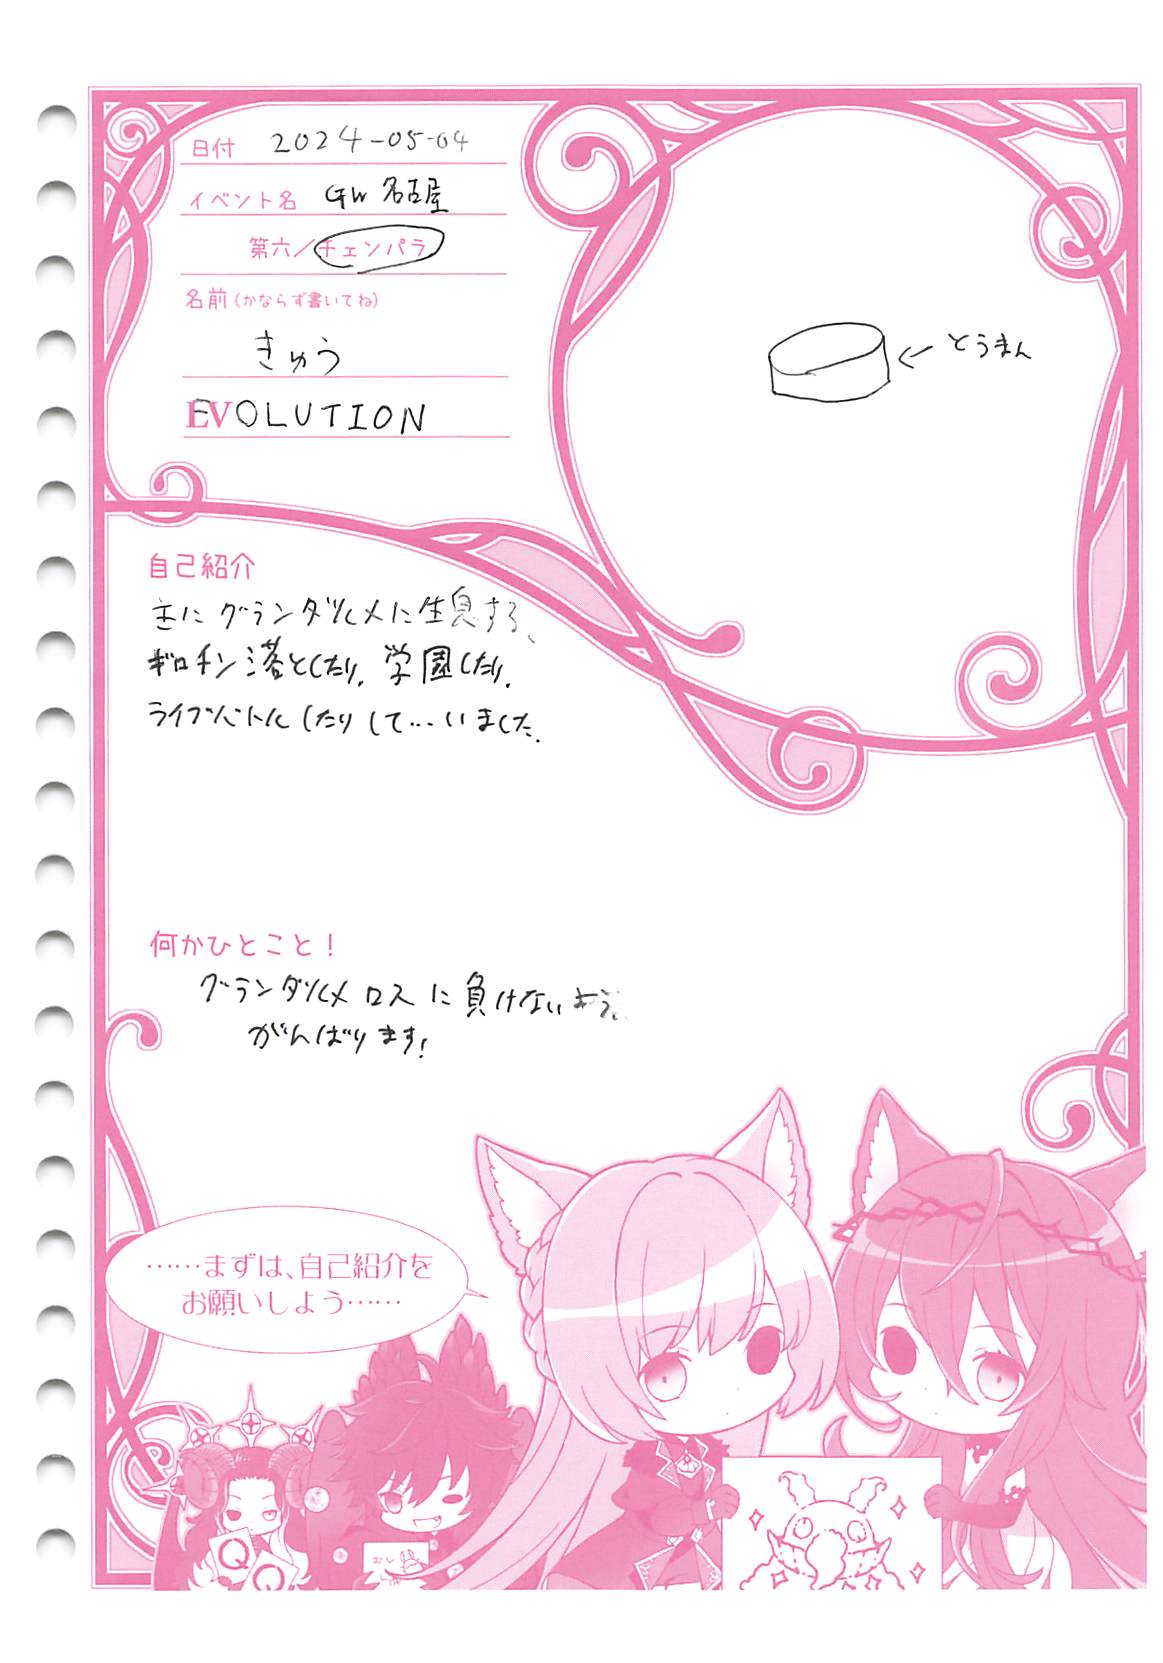 日付 2024-05-04
イベント名 GW 名古屋
第六／チェンパラ
名前(かならず書いてね)
きゅう
EVOLUTION
←とうまん
自己紹介
主にグランダルメに生息する、
ギロチン落としたり、学園したり、
ライブバトルしたりして…いました。
何かひとこと！
グランダルメロスに負けないよう、
がんばります!
……まずは、自己紹介を
お願いしよう……
Q
Q
むし